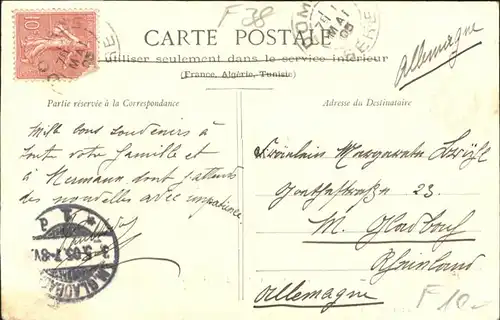 F 38
CARTE POSTALE
à utiliser seulement dans le service intérieur
(France, Algérie, Tunisie)
Allemagne
Partie réservée à la Correspondance
Adresse du Destinataire
10
Mille bons souvenirs à
tout votre famille et
à Hermann dont j'attends
des nouvelles avec impatience.
Fräulein Margarete
Goethestraße 23.
M. Gladbach
Rheinland
Allemagne
F 10.-